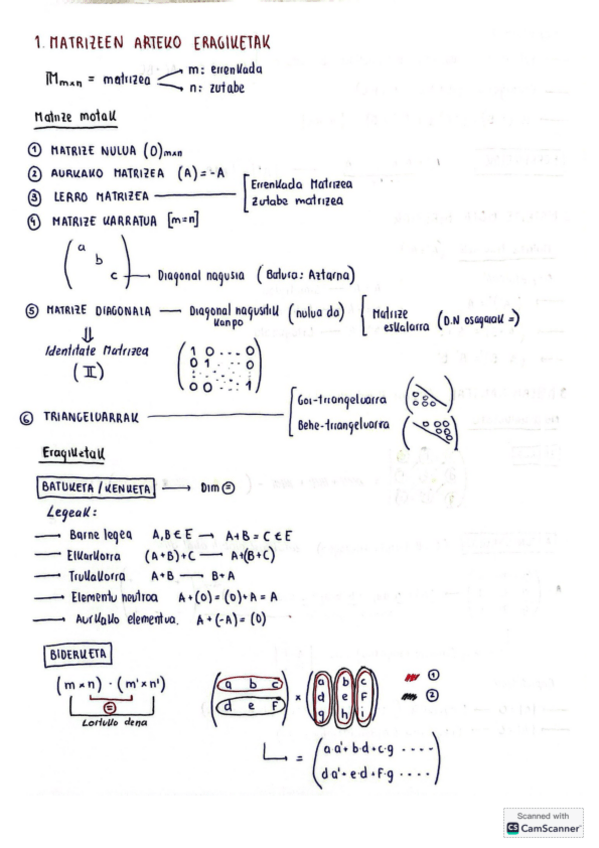 1. MATRIZEEN ARTEKO ERAGIKETAK
Mm×n = matrizea
m: errenkada
n: zutabe
Matrize motak
① MATRIZE NULUA (0)m×n
② AURKAKO MATRIZEA (A) = -A
③ LERRO MATRIZEA
Errenkada Matrizea
Zutabe matrizea
④ MATRIZE KARRATUA [m=n]
a
b
c
Diagonal nagusia (Batura: Aztarna)
⑤ MATRIZE DIAGONALA — Diagonal nagusitik kanpo (nulua da)
Matrize eskalarra (D.N osagaiak =)
⇓
Identitate Matrizea
(II)
1 0 . . . 0
0 1 . . . 0
0 0 . . . 1
⑥ TRIANGELUARRAK
Goi-triangeluarra
Behe-triangeluarra
Eragiketak
BATUKETA / KENKETA → Dim =
Legeak:
Barne legea A,B ∈ E → A+B = C ∈ E
Elkarkorra (A+B)+C → A+(B+C)
Trukakorra A+B → B+A
Elementu neutroa A+(0) = (0)+A = A
Aurkako elementua. A+(-A) = (0)
BIDERKETA
(m×n) · (m'×n')
=
Lortuko dena
a b c
d e F
×
a b c
d e F
g h i
①
②
= (a a'+b·d+c·g ....
d a'+e·d+F·g ....)
Scanned with
CS CamScanner